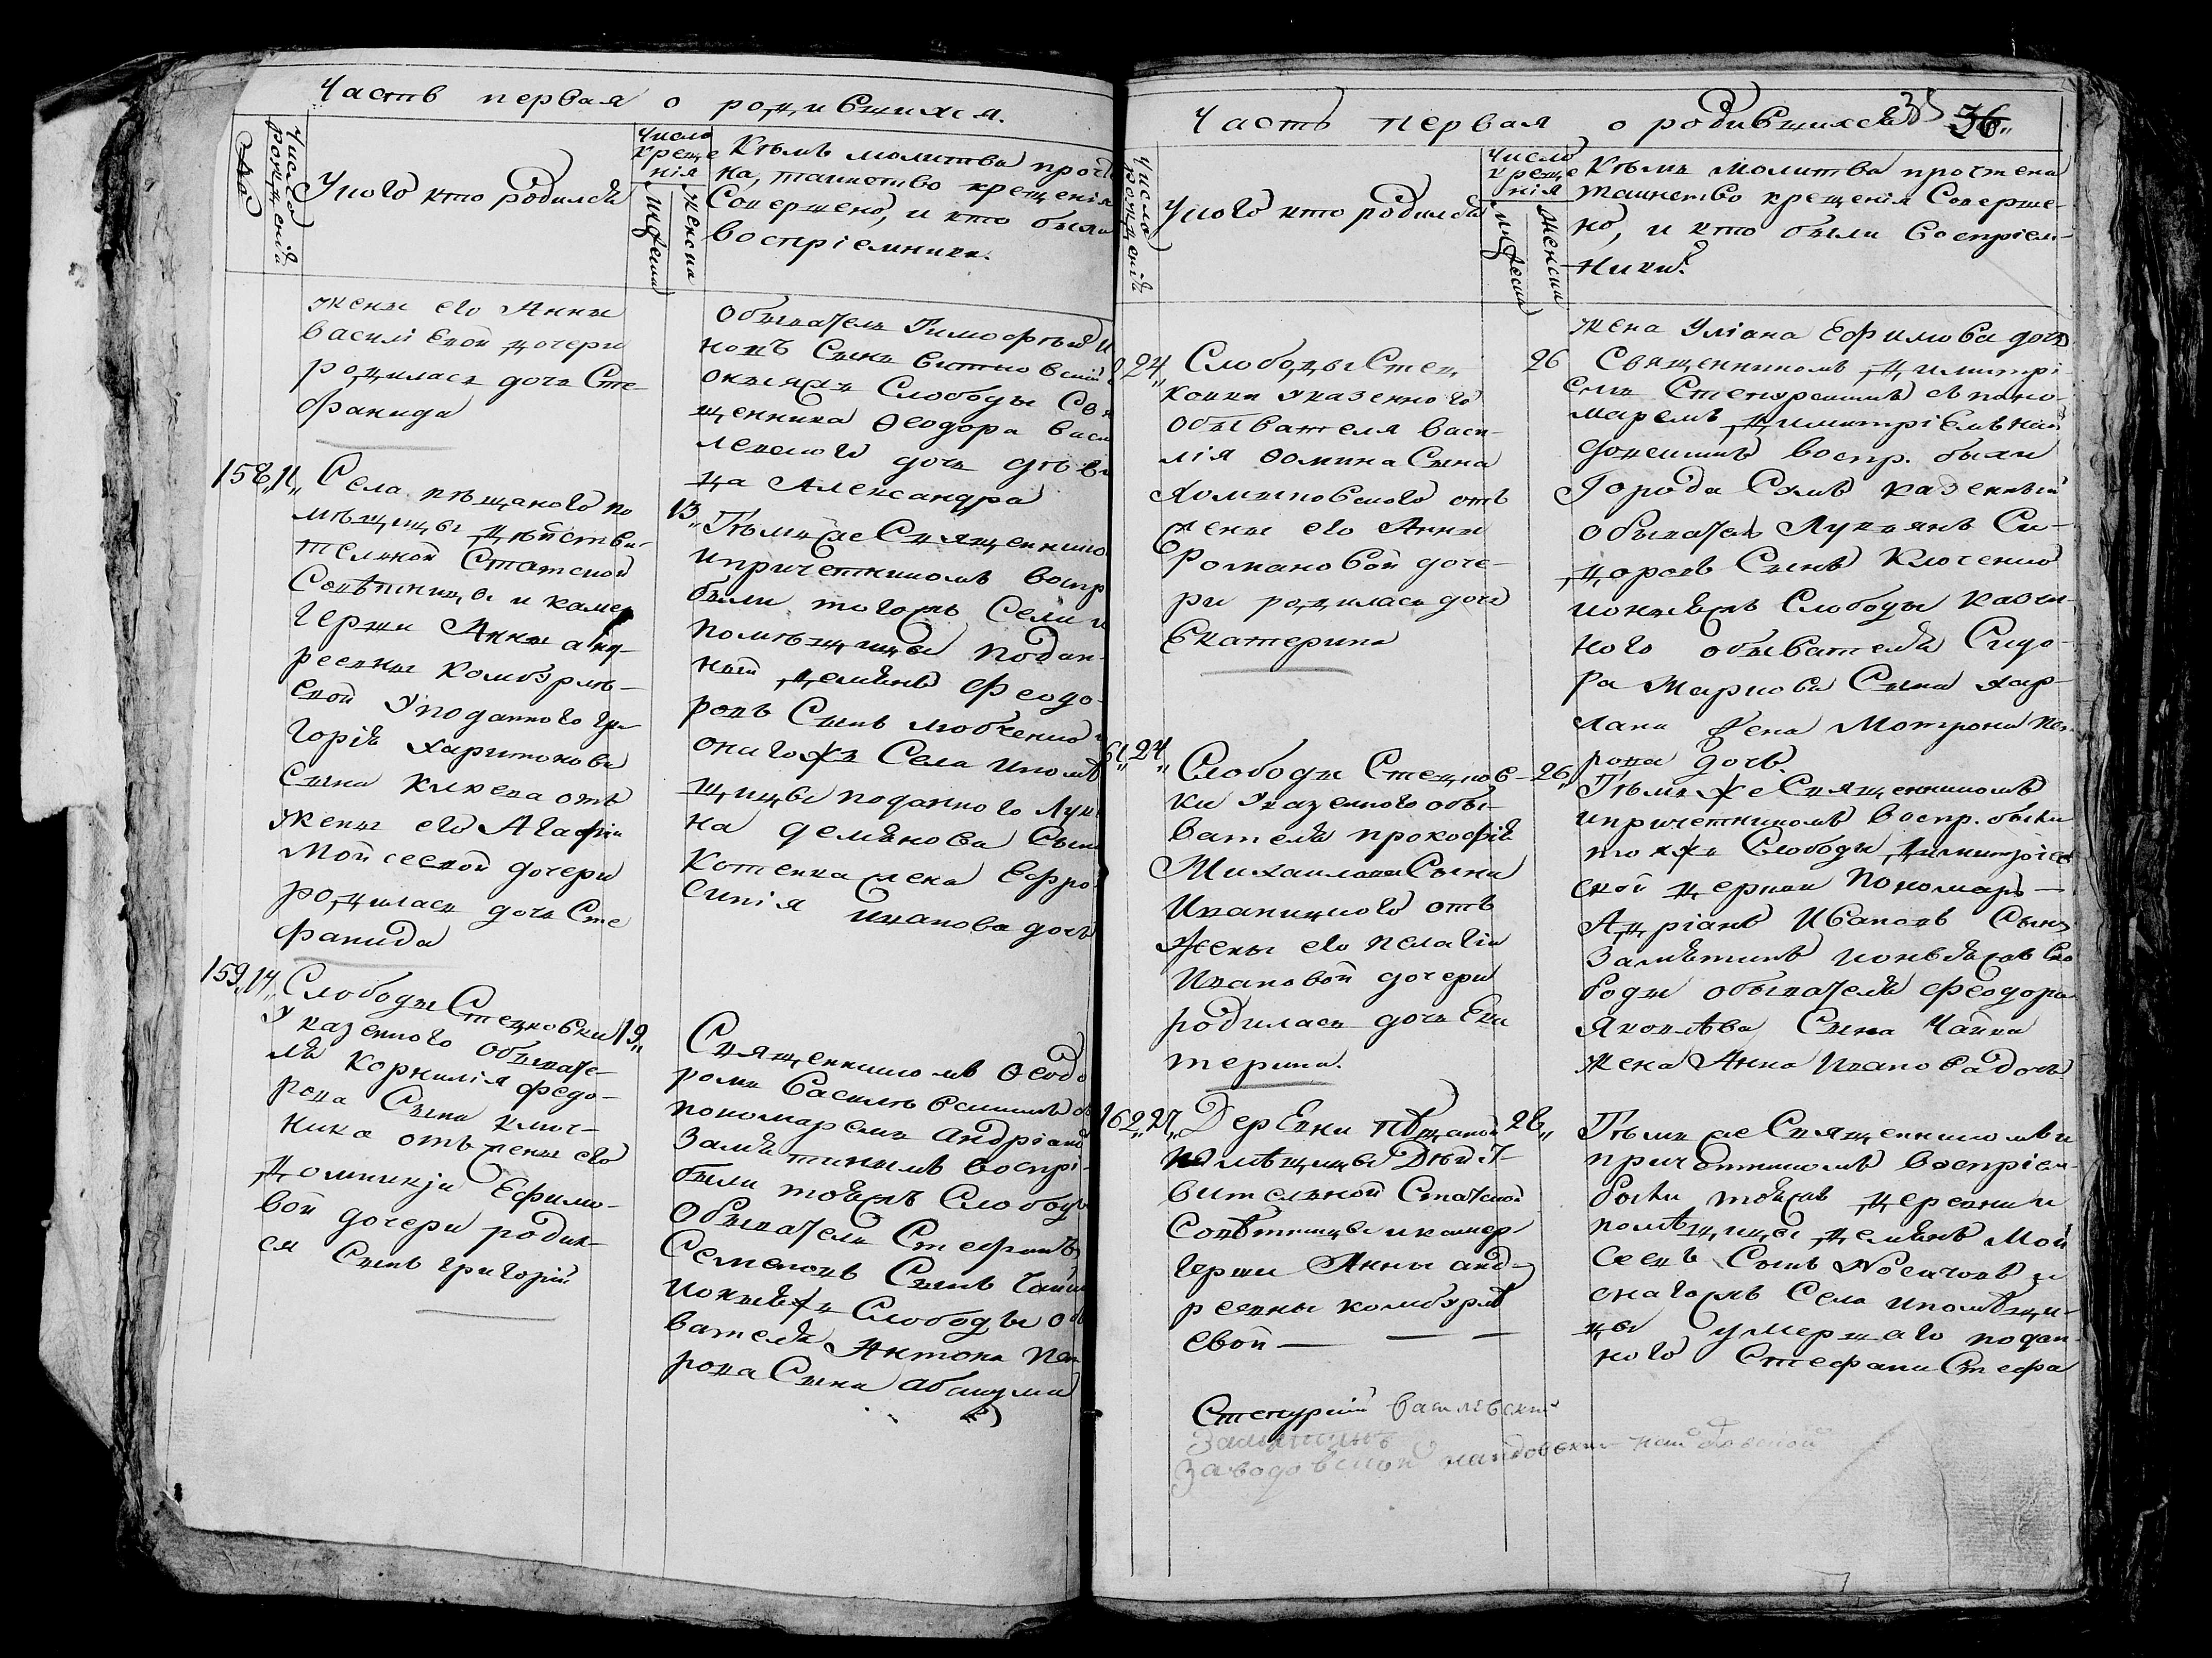 Часть первая о родившихся.
№
Число рожденій
У кого кто родился
Число
креще
нія
Мужеска
Женска
Кѣмъ молитва проч
на, таинство крещенія
Совершено, и кто были
воспріемники.
жены его Анны
василіевой дочери
родилась дочь Сте-
фанида
Обыватель Тимофѣй
новъ Сынъ
оныяжъ Слободы Свя
щенника Ѳеодора васи
левского дочь дѣви
ца Александра
158,, 11,, Села пѣщаного по
мѣщицы дѣйстви-
тельной Статской
Совѣтницы и камер
герши Анны анд-
реевны комбурлѣ-
евой У поданного гри
горія харитонова
Сына отъ
жены его Агафіи
Мойсеевой дочери
родилась дочь Сте
фанида
13,, Тѣмъже Священнико
и причетникомъ воспр
были тогожъ Села и
помѣщицы подан-
ный демянъ Феодо-
ровъ Сынъ любченко
оногожъ Села и помѣ
щицы поданного Лукя
на демянова Сына
Котенка жена Евфро-
синія иванова дочь
159,, 14,, Слободы Стецковки
У казенного Обывате-
ля Корнилія федо-
рова Сына ключ-
ника отъ жены его
домникіи Ефимо-
вой дочери родил-
ся Сынъ григорій
19,, Священникомъ Ѳеодо
ромъ Василевскимъ съ
пономаремъ андріаномъ
Замятинымъ воспрі-
были тояжъ Слободы
Обыватели Стефанъ
Семеновъ Сынъ Чайка
и оныяжъ Слободы Обы
вателя Антона Пет
рова Сына
Часть первая о родившихся 35 36,,
Число рожденій
У кого кто родился
Число
креще
нія
Мужеска
Женска
Кѣмъ молитва прочтена
таинство крещенія Соверше-
но, и кто были воспріем-
ники.
жена Уліана Ефимова дочь
24,, Слободы Стец
ковки У казенного
обывателя Васи-
лія Ѳомина Сына
отъ
жены его Анны
Романовой доче-
ри родилась дочь
Екатерина
26 Священникомъ димитрі
емъ Стенурскимъ съ поно-
маремъ димитріемъ най
довскимъ воспр. были
Города Сумъ казенный
обыватель Лукьянъ Си-
доровъ Сынъ Ключенко
и оныяжъ Слободы казен-
ного обывателя Сидо-
ра Маркова Сына хар-
лана жена Мотрона пет
рова дочь.
61,, 24,, Слободы Стецков-
ки У казенного обы-
вателя прокофія
Михаилова Сына
Иваницкого отъ
Жены его пелагіи
Ивановой дочери
родилась дочь Ека
терина.
26,, Тѣмъ же Священникомъ
и причетникомъ воспр. были
тояжъ Слободы димитріев
ской церкви пономарь
Адріанъ Ивановъ Сынъ
Замятинъ и оныяжъ Сло
боды обывателя Феодора
Яковлѣва Сына Чайки
жена Анна Иванова дочь
162,, 27,, Деревни пѣщаной
помѣщицы Дѣйст-
вительной Статской
Совѣтницы и камер
герши Анны анд-
реевны комбурлѣ
евой
28,, Тѣмъ же Священникомъ и
причотникомъ воспріем-
были тояжъ деревни и
помѣщицы демянъ Мой
сеевъ Сынъ Носачовъ и
оногожъ Села и помѣщи-
цы умершаго подан
ного Стефана Стефа
Стенурскій Василевскій
Замятинъ
Заводовскій найдовскій